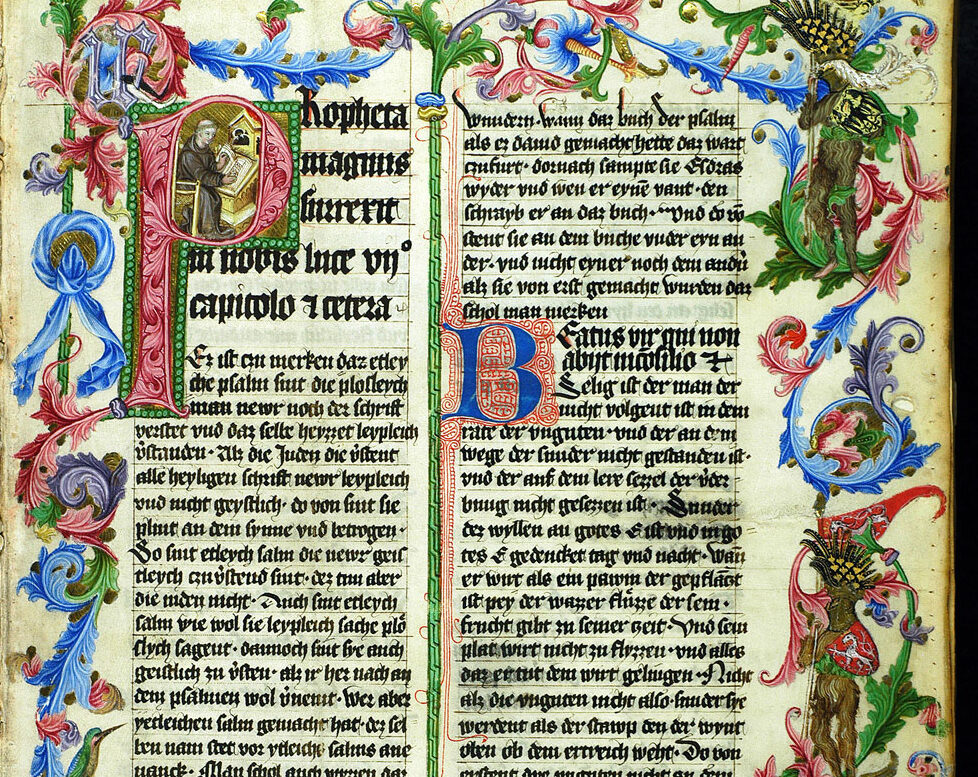 PRopheta
magnus
surexit
in nobis luce vij°
capitolo ⁊ cetera
Ez ist czu merken daz etley
che psalm sint die plosleych
man newr noch der schrift
verstet vnd daz selbe heyzzet leypleich
v̓standen · Alz die Juden die v̓stent
alle heyligen schrift newr leypleich
vnd nicht geystlich · do von sint sie
plint an dem synne vnd betrogen ·
So sint etleych salm die newr geist
tleych czu v̓stend sint · dez tun aber
die iuden nicht · Auch sint etleych
salm wie wol sie leypleich sache plö
slych sagent · dannoch sint sye auch
geistlich zu v̓sten · alz ir her nach an
dem psalmen wol v̓nemt · Wer aber
yetleichen salm gemacht hat · der sel
ben nam stet vor ytleichē salms ane
uanck · Man schol auch wizzen daz
wundern · wann daz buch der psalm
als ez dauid gemacht hette daz wart
czufurt · dornach sampte sie Esdras
wyder vnd wen er eyne vant · den
schrayb er an daz buch · Vnd do vō
stent sie an dem buche vnder eyn an
der · vnd nicht eyner noch dem andn̄
alz sie von erst gemacht wurden daz
schol man merken
BEatus vir qui non
abijt in cōsilio ⁊
Selig ist der man der
nicht volgent ist in dem
rate der vnguten · vnd der an dem
wege der sunder nicht gestanden ist ·
vnd der auf dem lere sezzel der v̓der
bnug nicht gesezzen ist · Sunder
der wyllen an gotes E ist vnd in go
tes E gedencket tag vnd nacht · Wan̄
er wirt als ein pawm der gepflāczt
ist pey der wazzer flüzze der sein ·
frucht gibt zu seiner czeit · Vnd sein
plat wirt nicht zu flyzzen · vnd alles
daz er tut dem wirt gelingen · Nicht
alz die vnguten nicht also · sunder sye
werdent als der stawp den der wynt
oben ob dem ertreich weht · Do von
erstent die vnguten nicht an dem